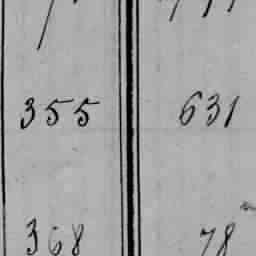 355 631
368 78